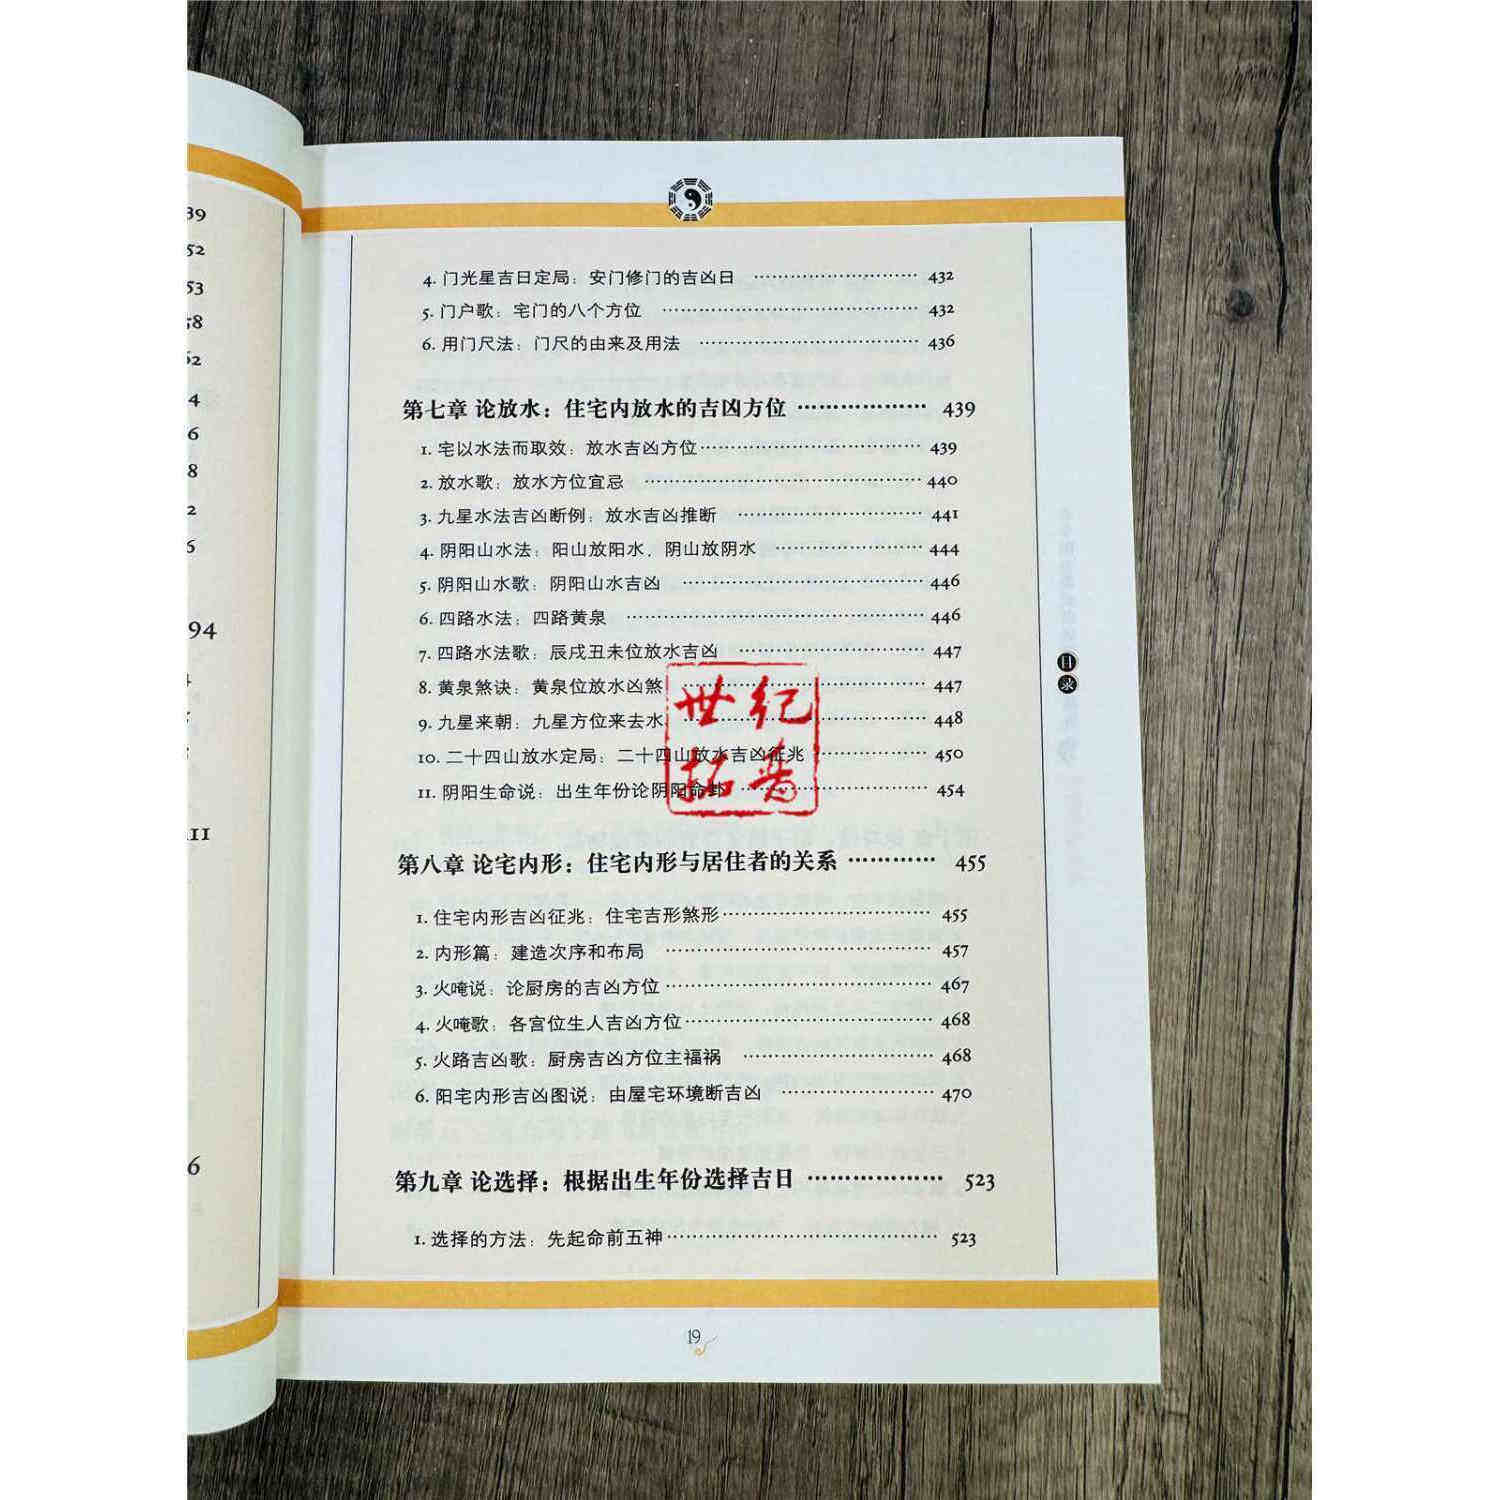 39
52
53
58
62
4
6
8
2
6
94
III
6
4. 门光星吉日定局：安门修门的吉凶日 ………………………… 432
5. 门户歌：宅门的八个方位 ………………………… 432
6. 用门尺法：门尺的由来及用法 ………………………… 436
第七章 论放水：住宅内放水的吉凶方位 ……………… 439
1. 宅以水法而取效：放水吉凶方位 ………………………… 439
2. 放水歌：放水方位宜忌 ………………………… 440
3. 九星水法吉凶断例：放水吉凶推断 ………………………… 441
4. 阴阳山水法：阳山放阳水，阴山放阴水 ………………………… 444
5. 阴阳山水歌：阴阳山水吉凶 ………………………… 446
6. 四路水法：四路黄泉 ………………………… 446
7. 四路水法歌：辰戌丑未位放水吉凶 ………………………… 447
8. 黄泉煞诀：黄泉位放水凶煞 ………………………… 447
9. 九星来朝：九星方位来去水 ………………………… 448
10. 二十四山放水定局：二十四山放水吉凶征兆 ……………… 450
11. 阴阳生命说：出生年份论阴阳命卦 ………………………… 454
世纪
拓普
第八章 论宅内形：住宅内形与居住者的关系 ………… 455
1. 住宅内形吉凶征兆：住宅吉形煞形 ………………………… 455
2. 内形篇：建造次序和布局 ………………………… 457
3. 火唵说：论厨房的吉凶方位 ………………………… 467
4. 火唵歌：各宫位生人吉凶方位 ………………………… 468
5. 火路吉凶歌：厨房吉凶方位主福祸 ………………………… 468
6. 阳宅内形吉凶图说：由屋宅环境断吉凶 ………………………… 470
第九章 论选择：根据出生年份选择吉日 ……………… 523
1. 选择的方法：先起命前五神 ………………………… 523
目录
19